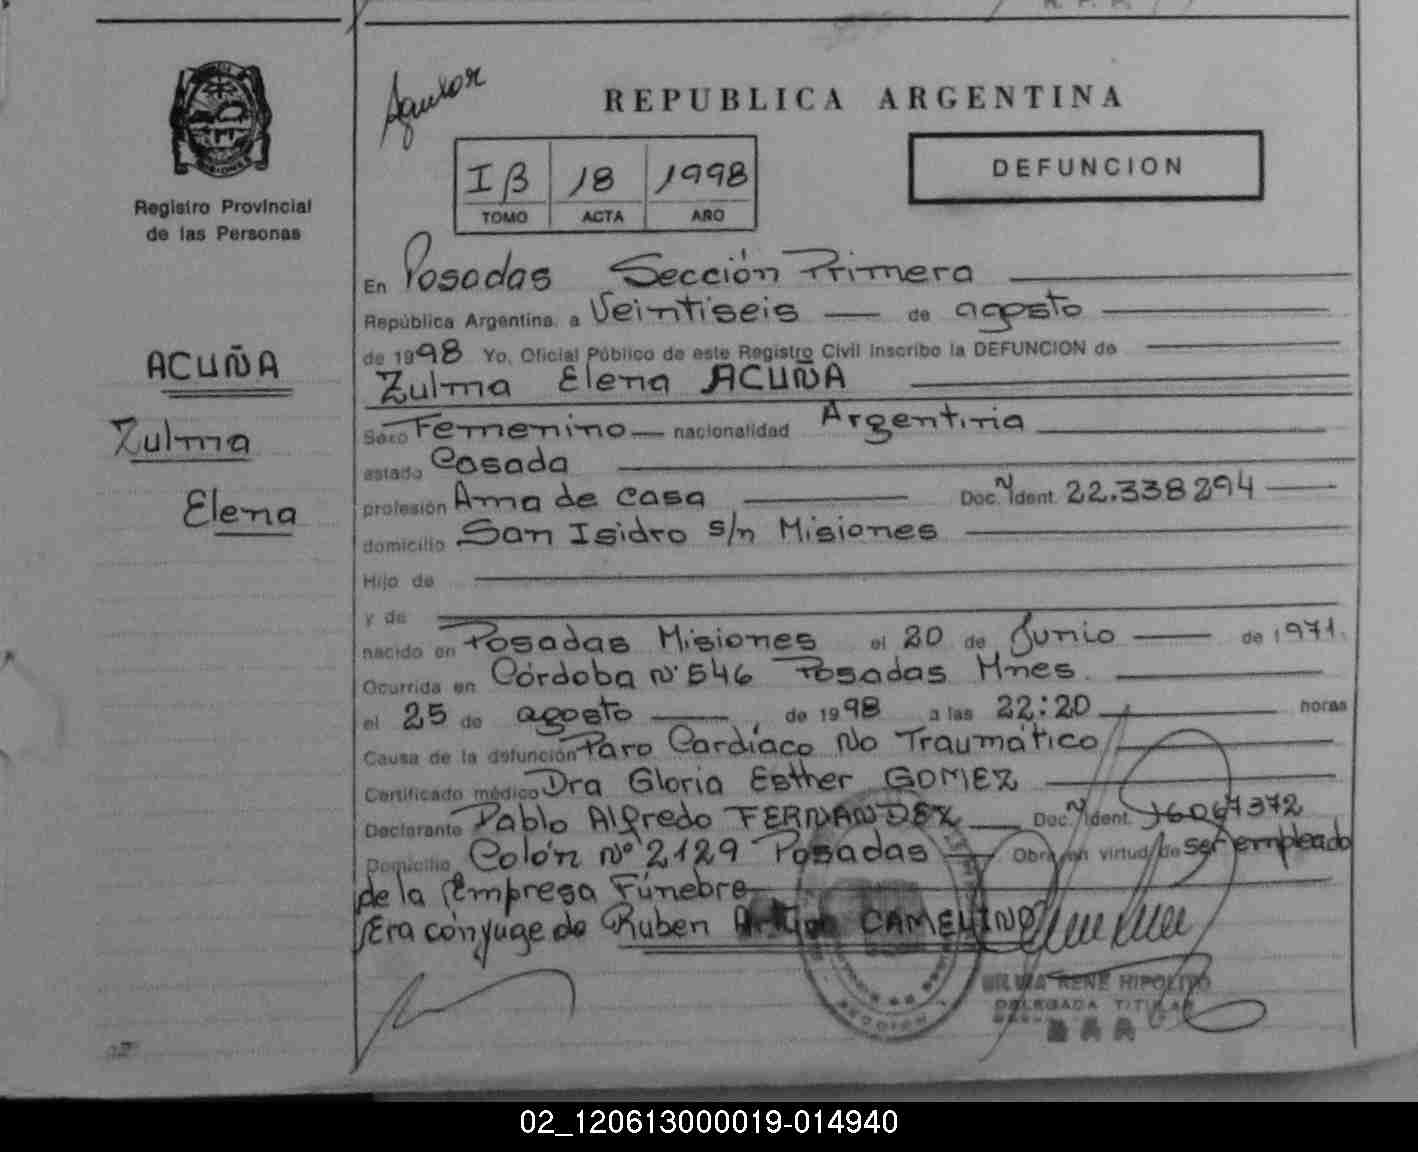 REPUBLICA ARGENTINA
Registro Provincial
de las Personas
I B 18 1998
TOMO ACTA AÑO
DEFUNCION
ACUÑA
Zulma
Elena
En Posadas Sección Primera
República Argentina, a Veintiseis de agosto
de 1998 Yo, Oficial Público de este Registro Civil inscribo la DEFUNCION de
Zulma Elena ACUÑA
Sexo Femenino nacionalidad Argentina
estado Casada
profesión Ama de casa Doc. Ident. 22.338294
domicilio San Isidro s/n Misiones
Hijo de
y de
nacido en Posadas Misiones el 20 de Junio de 1971.
Ocurrida en Córdoba Nº 546 Posadas Mnes.
el 25 de agosto de 1998 a las 22:20 horas
Causa de la defunción Paro Cardíaco No Traumático
Certificado médico Dra Gloria Esther GOMEZ
Declarante Pablo Alfredo FERNANDEZ Doc. Ident. 16067372
Domicilio Colón Nº 2129 Posadas Obra en virtud de ser empleado
de la Empresa Fúnebre
Era cónyuge de Ruben CAMELINO
RENE HIPOLITO
DELEGADA TITULAR
02_120613000019-014940